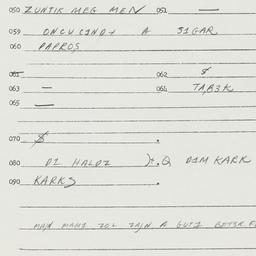 050 ZUNTIK MEG MEN 051 —
059 ONCUCIND+ A SIGAR
060 PAPROS
061 062 $
063 — 064 TAB3K
065 —
070 $ .
080 D1 HALDZ )+.Q D1M KARK
090 KARKS .
MAJN MAME ZOL ZAJN A GUTE BETER F